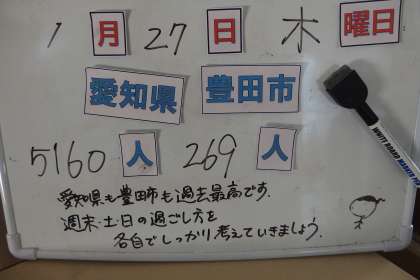 1月27日木曜日
愛知県 豊田市
5160人 269人
愛知県も豊田市も過去最高です。
週末・土・日の過ごし方を
各自でしっかり考えていきましょう。
WHITE BOARD MARKER